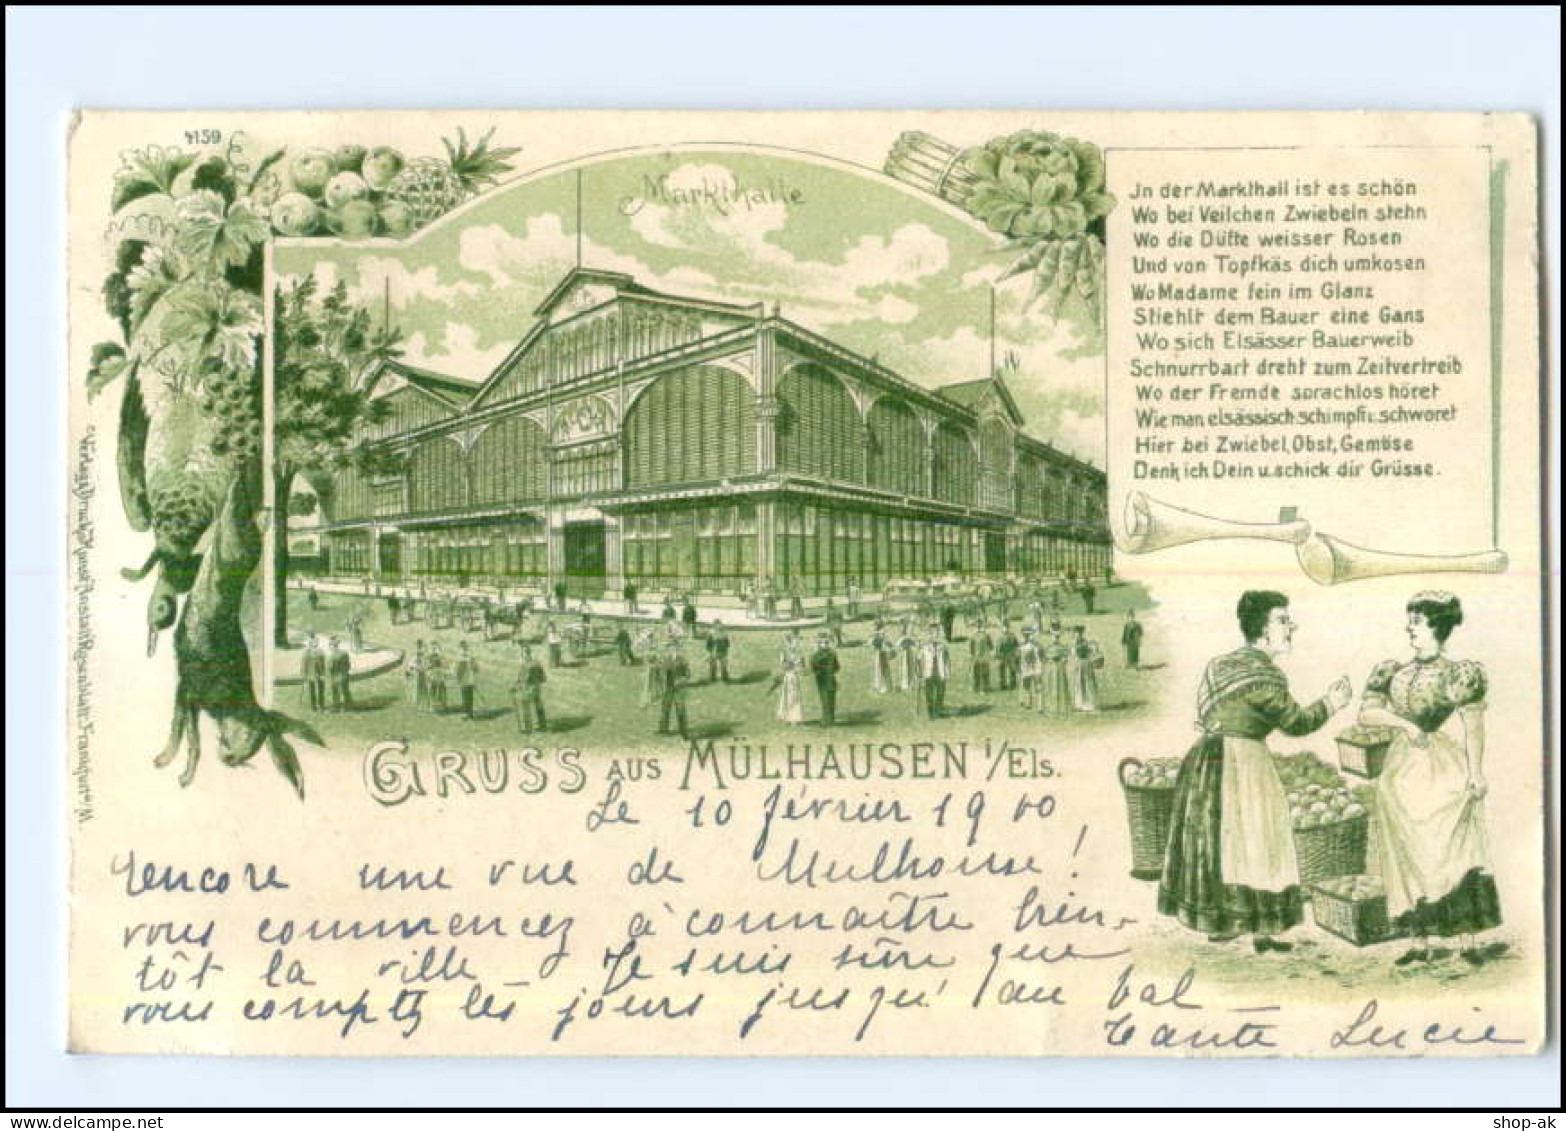 4159
Markthalle
Jn der Markthall ist es schön
Wo bei Veilchen Zwiebeln stehn
Wo die Düfte weisser Rosen
Und von Topfkäs dich umkosen
Wo Madame fein im Glanz
Stiehlt dem Bauer eine Gans
Wo sich Elsässer Bauerweib
Schnurrbart dreht zum Zeitvertreib
Wo der Fremde sprachlos höret
Wie man elsässisch schimpft u. schwöret
Hier bei Zwiebel, Obst, Gemöse
Denk ich Dein u. schick dir Grüsse.
Verlag Druck Kunst Anstalt Rosenblatt Frankfurt a/M.
GRUSS AUS MÜLHAUSEN i/Els.
Le 10 février 1900
encore une vue de Mulhouse!
vous commencez à connaître bien-
tôt la ville – Je suis sûre que
vous comptez les jours jusqu' au bal –
Tante Lucie
shop-ak